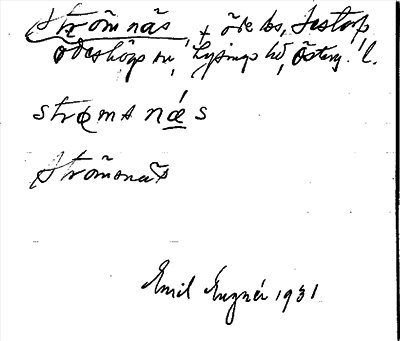 Strömnäs, t öde bs, Jestorp,
Ödeshögs sn, Lysings hd, Österg. l.
strøms næ s
Strömsnäs
Emil Eugnér 1931